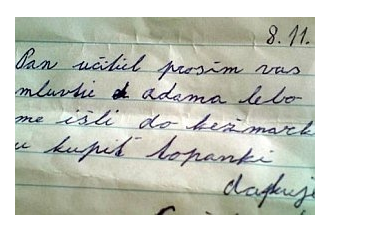 8.11.
Pan učitil prosim vas
mluvtie adama lebo
me išli do kežmark
u kupiť topanki
dakuje